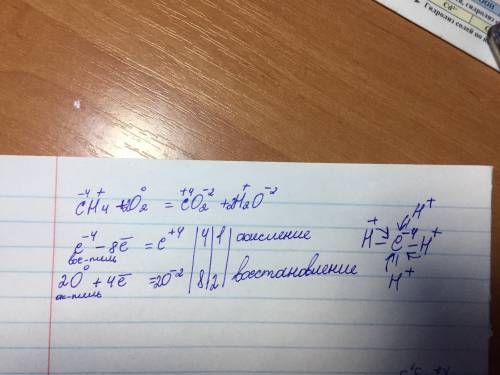 Cd²⁺
Гидролиз солей по
-4 + 0 +4 -2 + -2
CH4 + 2O2 = CO2 + 2H2O
C⁻⁴ - 8ē = C⁺⁴ | 4 | 1 | окисление
вос-тель
2O⁰ + 4ē = 2O⁻² | 8 | 2 | восстановление
ок-тель
H⁺
H⁺ C⁻⁴ H⁺
H⁺